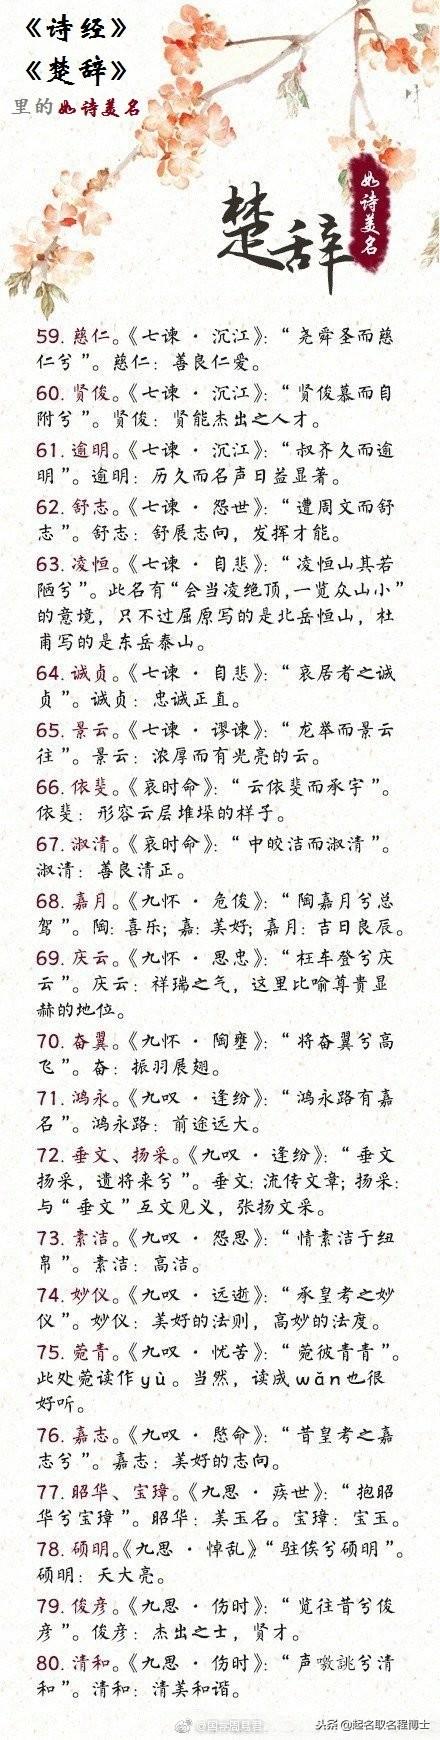 《诗经》
《楚辞》
里的如诗美名
楚辞
如诗美名
59. 慈仁。《七谏·沉江》：“尧舜圣而慈
仁兮”。慈仁：善良仁爱。
60. 贤俊。《七谏·沉江》：“贤俊慕而自
附兮”。贤俊：贤能杰出之人才。
61. 逾明。《七谏·沉江》：“叔齐久而逾
明”。逾明：历久而名声日益显著。
62. 舒志。《七谏·怨世》：“遭周文而舒
志”。舒志：舒展志向，发挥才能。
63. 凌恒。《七谏·自悲》：“凌恒山其若
陋兮”。此名有“会当凌绝顶，一览众山小”
的意境，只不过屈原写的是北岳恒山，杜
甫写的是东岳泰山。
64. 诚贞。《七谏·自悲》：“哀居者之诚
贞”。诚贞：忠诚正直。
65. 景云。《七谏·谬谏》：“龙举而景云
往”。景云：浓厚而有光亮的云。
66. 依斐。《哀时命》：“云依斐而承宇”。
依斐：形容云层堆垛的样子。
67. 淑清。《哀时命》：“中皎洁而淑清”。
淑清：善良清正。
68. 嘉月。《九怀·危俊》：“陶嘉月兮总
驾”。陶：喜乐；嘉：美好；嘉月：吉日良辰。
69. 庆云。《九怀·思忠》：“枉车登兮庆
云”。庆云：祥瑞之气，这里比喻尊贵显
赫的地位。
70. 奋翼。《九怀·陶壅》：“将奋翼兮高
飞”。奋：振羽展翅。
71. 鸿永。《九叹·逢纷》：“鸿永路有嘉
名”。鸿永路：前途远大。
72. 垂文、扬采。《九叹·逢纷》：“垂文
扬采，遗将来兮”。垂文：流传文章；扬采：
与“垂文”互文见义，张扬文采。
73. 素洁。《九叹·怨思》：“情素洁于纽
帛”。素洁：高洁。
74. 妙仪。《九叹·远逝》：“承皇考之妙
仪”。妙仪：美好的法则，高妙的法度。
75. 菀青。《九叹·忧苦》：“菀彼青青”。
此处菀读作yù。当然，读成wǎn也很
好听。
76. 嘉志。《九叹·愍命》：“昔皇考之嘉
志兮”。嘉志：美好的志向。
77. 昭华、宝璋。《九思·疾世》：“抱昭
华兮宝璋”。昭华：美玉名。宝璋：宝玉。
78. 硕明。《九思·悼乱》“驻俟兮硕明”。
硕明：天大亮。
79. 俊彦。《九思·伤时》：“览往昔兮俊
彦”。俊彦：杰出之士，贤才。
80. 清和。《九思·伤时》：“声噭誂兮清
和”。清和：清美和谐。
头条@起名取名程博士